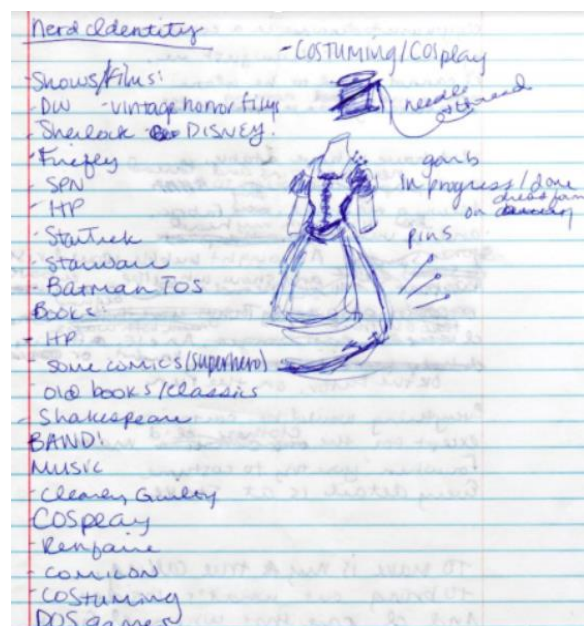 Nerd Identity
- Costuming/Cosplay
- Shows/Films:
- DW - vintage horror films
- Sherlock DISNEY.
- Firefly
- SPN
- HP
- Star Trek
- Starwars
- Batman TOS
Books
- HP
- some comics (superhero)
- old books/classics
- Shakespeare
BAND!
MUSIC
- Clearly Guilty
COSplay
- Renfaire
- comicon
- COStuming
DOS games
needle
thread
garb
in progress/done
on dress form
pins